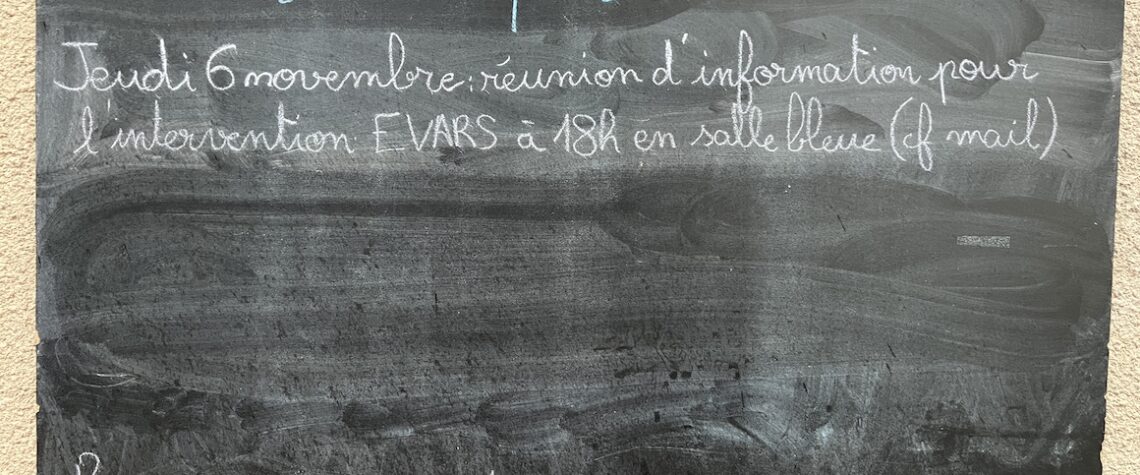 Jeudi 6 novembre : réunion d'information pour
l'intervention EVARS à 18h en salle bleue (cf mail)